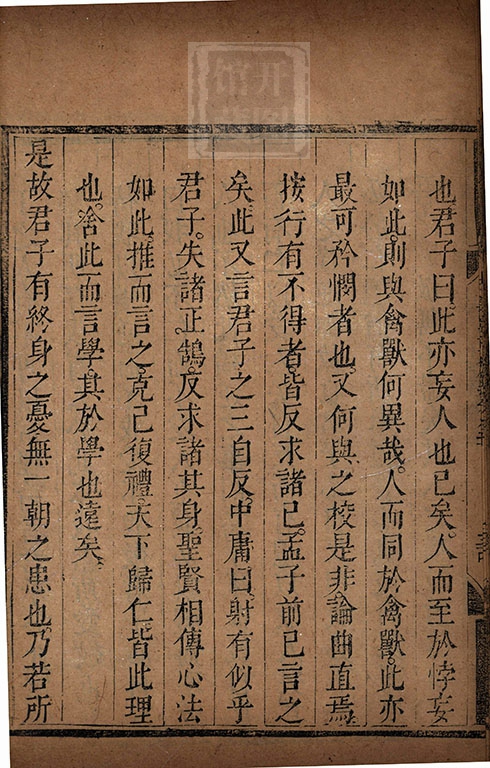 也君子曰此亦妄人也已矣。人而至於悖妄
如此則與禽獸何異哉。人而同於禽獸。此亦
最可矜憫者也。又何與之校是非論曲直焉
按行有不得者皆反求諸己。孟子前已言之
矣。此又言君子之三自反。中庸曰。射有似乎
君子。失諸正鵠。反求諸其身。聖賢相傳心法
如此。推而言之。克己復禮。天下歸仁。皆此理
也。舍此而言學。其於學也遠矣。
是故君子有終身之憂無一朝之患也。乃若所